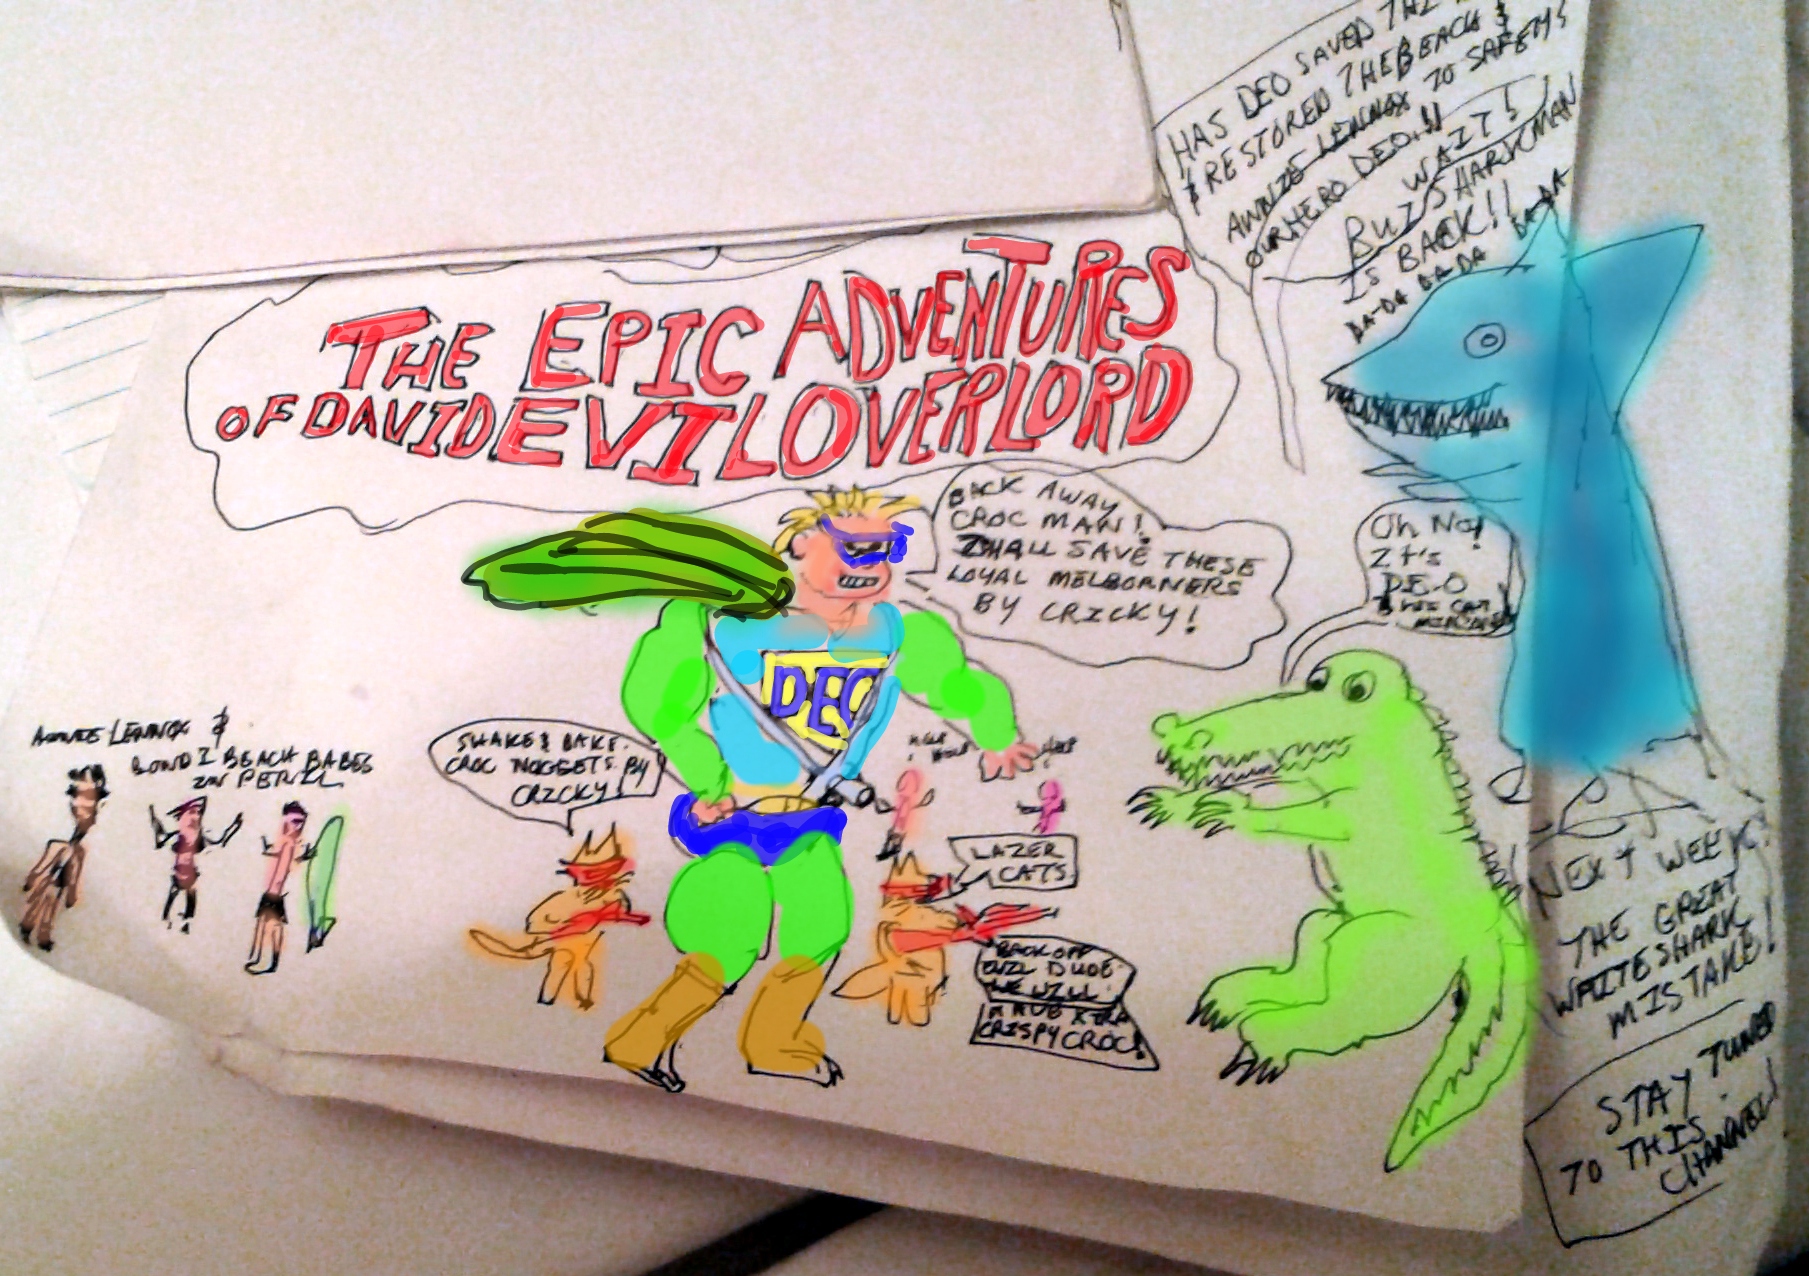 HAS DEO SAVED THE
& RESTORED THE BEACH &
ANNIE LENNOX TO SAFETY
OUR HERO DEO.!!
WAIT!
BUT SHARKMAN
IS BACK!!
DA-DA DA DA DA-DA
THE EPIC ADVENTURES
OF DAVIDEVILOVERLORD
BACK AWAY
CROC MAN!
I HALL SAVE THESE
LOYAL MELBORNERS
BY CRICKY!
Oh No!
It's
D.E.O
DEO
ANNIE LENNOX &
BONDI BEACH BABES
IN PERIL
SHAKE & BAKE.
CROC NUGGETS. BY
CRICKY!
HELP
HELP
HELP
LAZER
CATS
BACK OFF
EVIL DUDE
WE WILL
HAVE XTRA
CRISPY CROC!
NEXT WEEK!
THE GREAT
WHITE SHARK
MISTAKE!
STAY TUNED
TO THIS
CHANNEL!